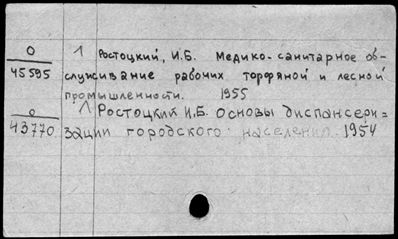 О
45595
1 Ростоцкий, И.Б. Медико-санитарное об-
служивание рабочих торфяной и лесной
промышленности. 1955
О
43770
1 Ростоцкий И.Б. Основы диспансери=
зации городского населения. 1954